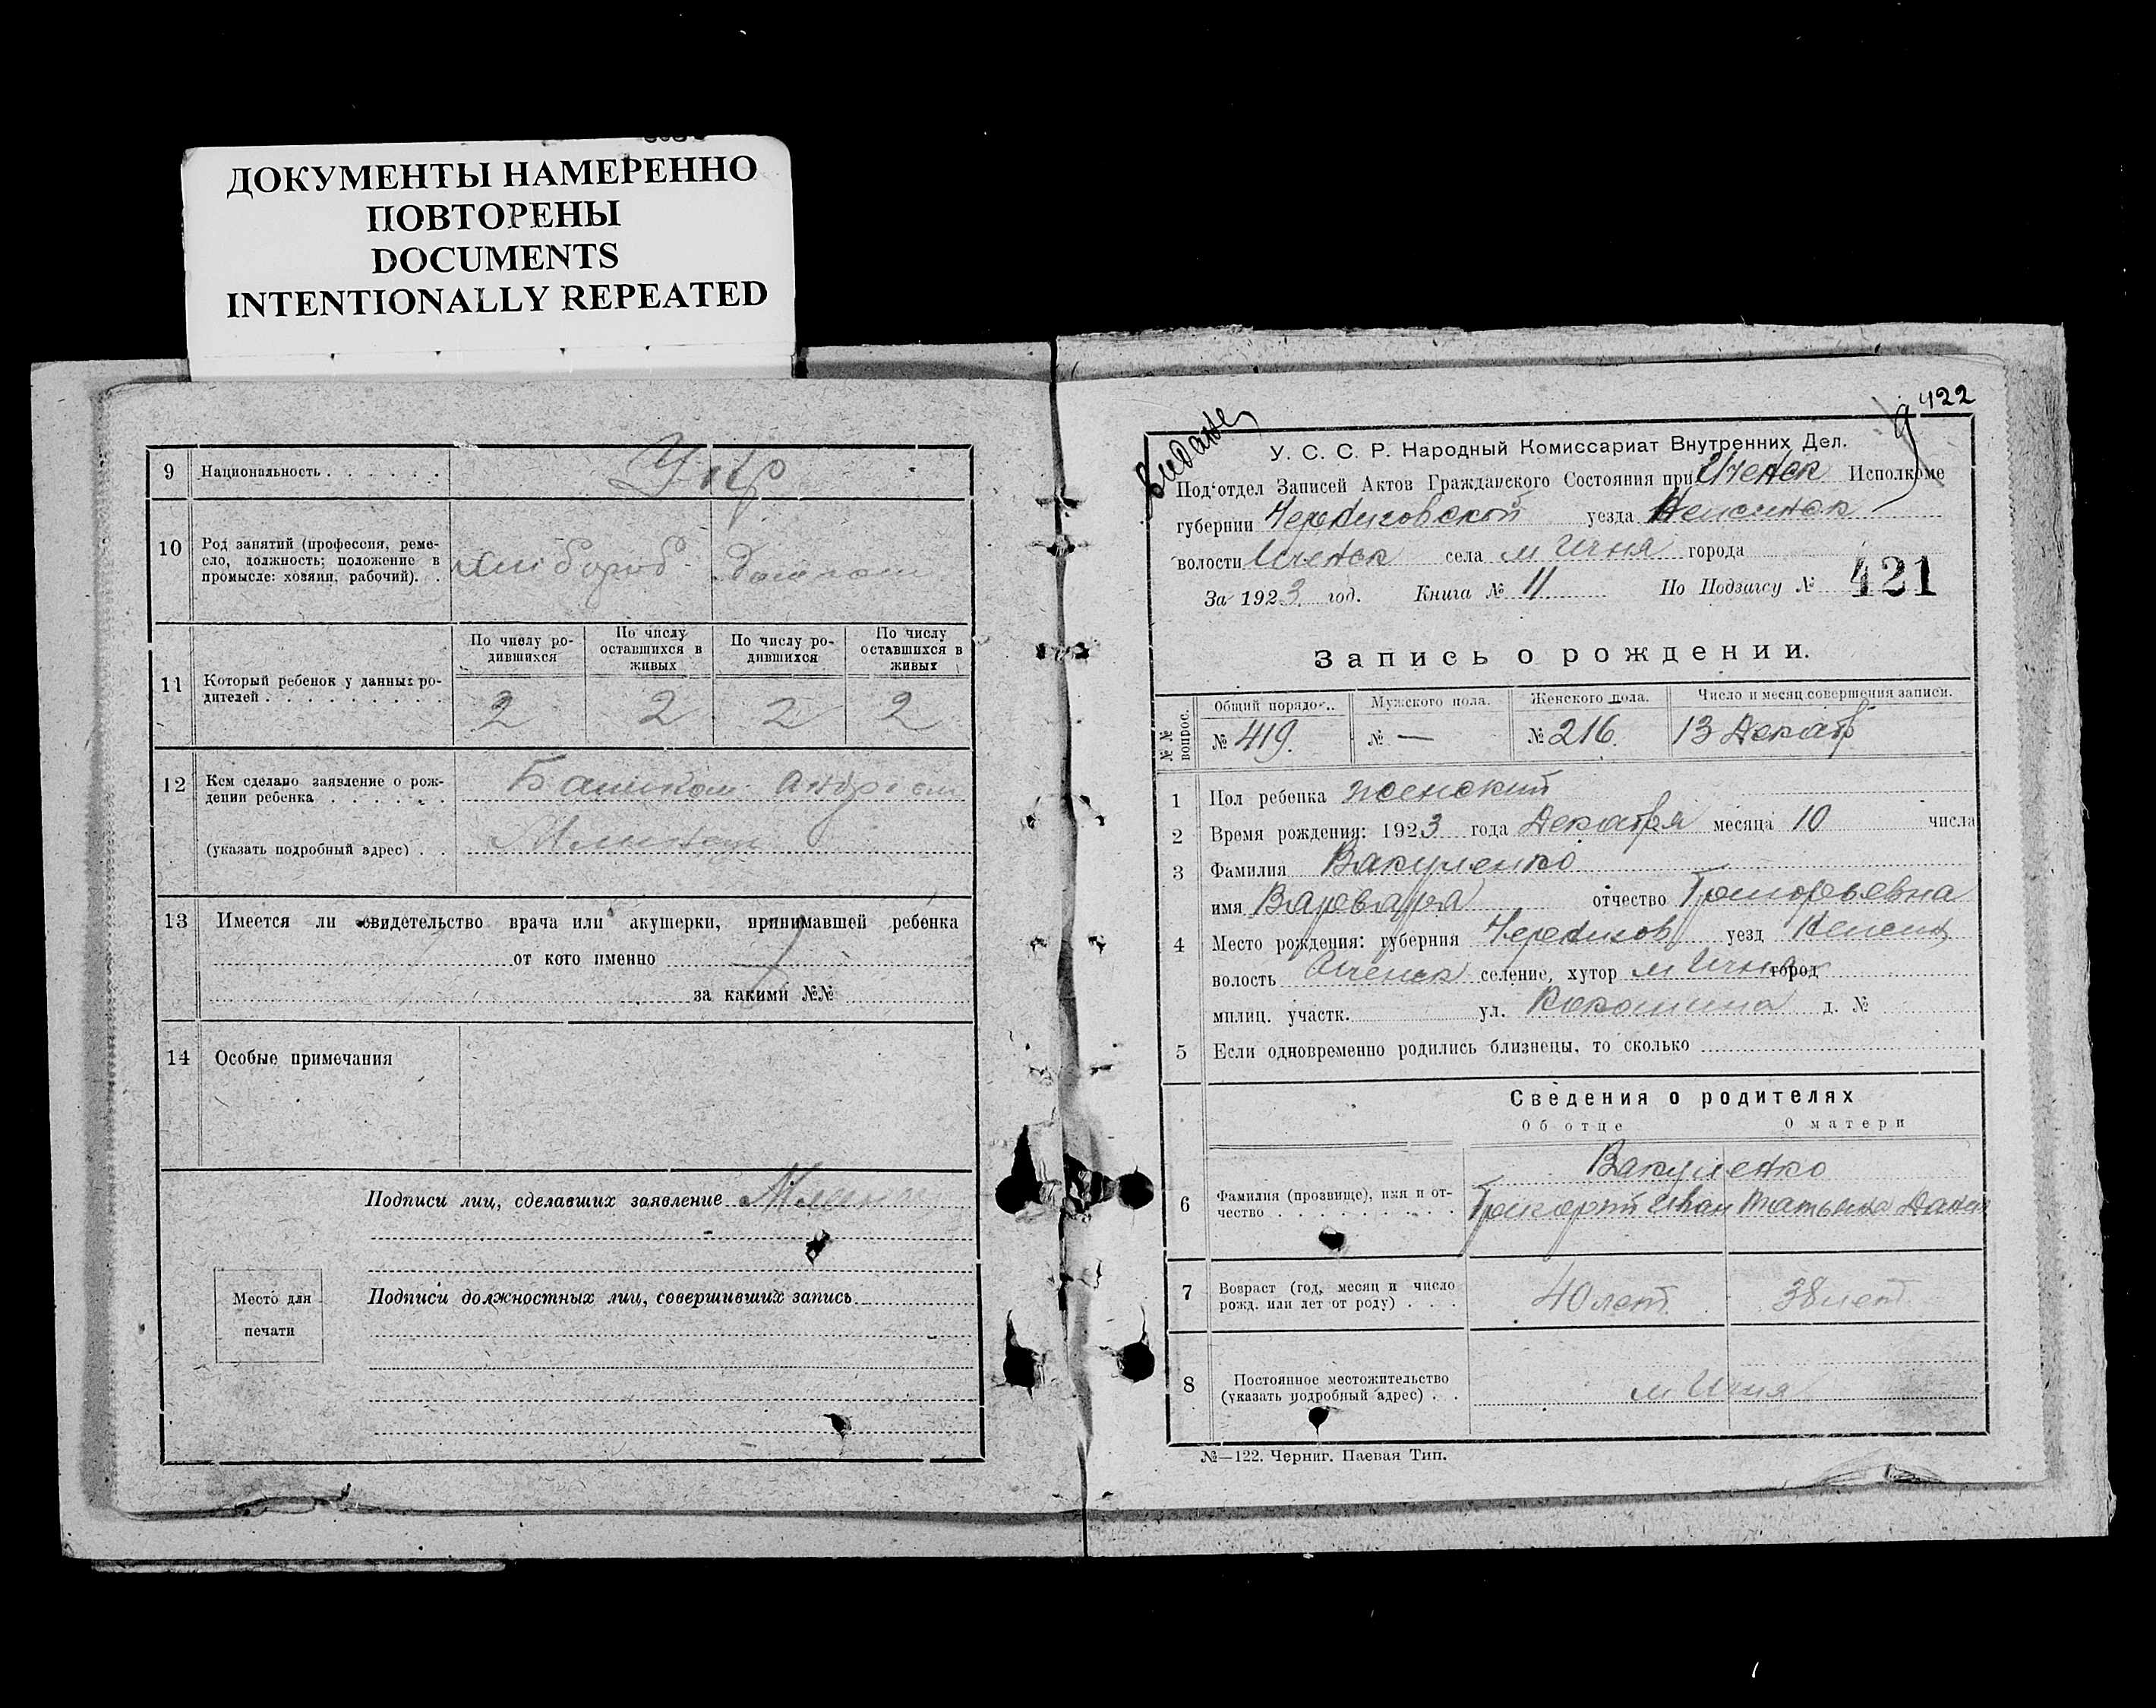 ДОКУМЕНТЫ НАМЕРЕННО
ПОВТОРЕНЫ
DOCUMENTS
INTENTIONALLY REPEATED
9 Национальность . . . . . . Укр
10 Род занятий (профессия, реме-
сло, должность; положение в
промысле: хозяин, рабочий). .
хлібороб
11 Который ребенок у данных ро-
дителей . . . . . . . . .
По числу ро-
дившихся
По числу
оставшихся в
живых
По числу ро-
дившихся
По числу
оставшихся в
живых
2 2 2 2
12 Кем сделано заявление о рож-
дении ребенка . . . . . .
(указать подробный адрес) . .
13 Имеется ли свидетельство врача или акушерки, принимавшей ребенка
от кого именно
за какими №№
14 Особые примечания
Подписи лиц, сделавших заявление
Место для
печати
Подписи должностных лиц, совершивших запись
422
У. С. С. Р. Народный Комиссариат Внутренних Дел.
Под‘отдел Записей Актов Гражданского Состояния при Иченск Исполкоме
губернии Черниговской уезда Нежинск
волости Иченск села м Ичня города
За 1923 год. Книга № 11. По Подзагсу № 421
Запись о рождении.
№№ вопрос.
Общий порядо... Мужского пола. Женского пола. Число и месяц совершения записи.
№ 419. № — № 216. 13 Декабр
1 Пол ребенка женский
2 Время рождения: 1923 года Декабря месяца 10 числа
3 Фамилия Вакуленко
имя Варвара отчество Григорьевна
4 Место рождения: губерния Чернигов уезд Нежинс
волость Иченск селение, хутор м Ичня город
милиц. участк. ул. д. №
5 Если одновременно родились близнецы, то сколько
Сведения о родителях
Об отце О матери
Вакуленко
6 Фамилия (прозвище), имя и от-
чество . . . . . . . . .
Григорий Иван Татьяна Данил
7 Возраст (год, месяц и число
рожд. или лет от роду) . . .
40 лет. 38 лет.
8 Постоянное местожительство
(указать подробный адрес) . .
м Ичня
№—122. Черниг. Паевая Тип.